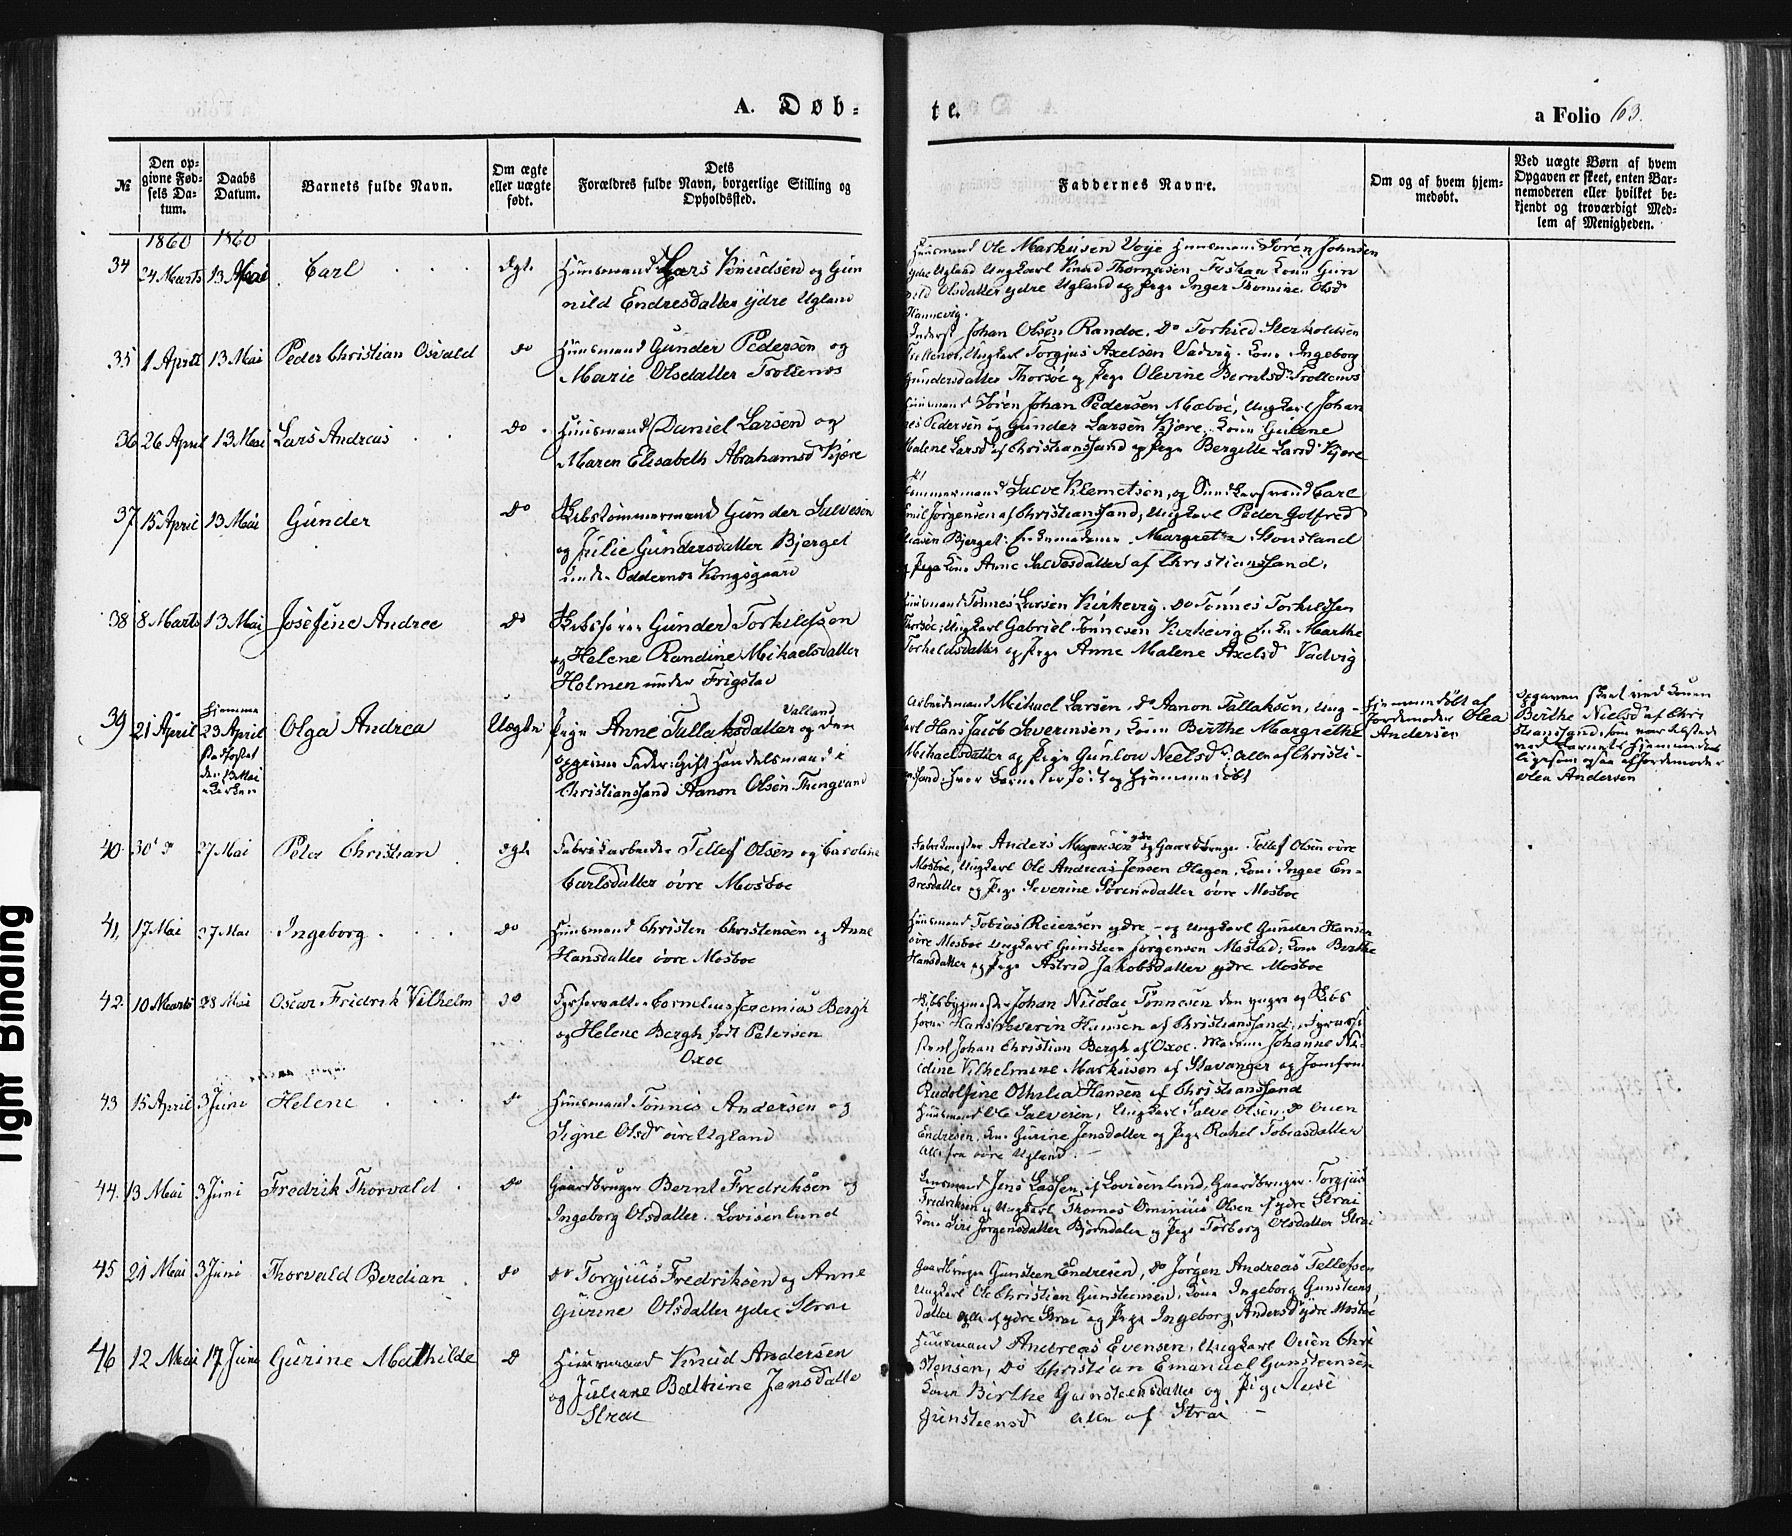 A. Døb-
te.
a Folio 63.
№
Den op-
givne Fød-
sels Da-
tum.
Daabs
Datum.
Barnets fulde Navn.
Om ægte
eller uægte
født.
Dets
Forældres fulde Navn, borgerlige Stilling og
Opholdssted.
Faddernes Navne.
Om og af hvem hjem-
medøbt.
Ved uægte Børn af hvem
Opgaven er skeet, enten Bar-
nemoderen eller hvilket be-
kjendt og troværdigt Med-
lem af Menigheden.
1860 1860
34 24 Marts 13 Mai Carl Ægte
Huusmand Lars Knudsen og Gun
nild Endresdatter ydre Ugland
Huusmand Ole Markusen Voje Huusmand Søren Johnsen
ydre Ugland Ungkarl Knud Thomasen Kone Gun
nild Olsdatter ydre Ugland og Pige Inger Thomine Olsd
Hannevig.
35 1 April 13 Mai Peder Christian Osvald do
Huusmand Gunder Pedersen og
Marie Olsdatter Trollenes
Inderst Johan Olsen Randoe. Do Torkild
Ungkarl Torgjus Axelsen Vadvig. Kone Ingeborg
Gundersdatter Thorsøe og Pige Olevine Berntsdr Trollenes
36 26 April 13 Mai Lars Andreas do
Huusmand Daniel Larsen og
Maren Elisabeth Abrahamsd Kjære
Huusmand Søren Johan Pedersen Mæboe, Ungkarl Johan
nes Pedersen og Gunder Larsen Kjære. Kone Guliene
Malene Larsd af Christianssand og Pige Bergitte Larsd Kjære
37 15 April 13 Mai Gunder do
Skibstømmermand Gunder Salvesen
og Julie Gundersdatter Bjerget
under Oddernes Kongsgaard
Tømmermand Salve Klemetsen, og Carl
Emil Jørgensen af Christianssand, Ungkarl Peder Gotfred
Bjerget. Margrethe Stonsland
og Pige Anne Salvesdatter af Christianssand.
38 8 Marts 13 Mai Josefine Andree do
Skibsfører Gunder Torkildsen
og Helene Randine Mikaelsdatter
Holmen under Frigstad
Huusmand Tønnes Larsen Kirkevig. Do Tønnes Torkildsen
Thorsøe; Ungkarl Gabriel Tønnesen Kirkevig Marthe
Torkildsdatter og Pige Anne Malene Axelsd Vadvig
39 21 April Hjemme
23 April
Stadfæstet
den 13 Mai
i Kirken
Olga Andrea Uægte
Pige Anne Tallaksdatter Valland og den
opgivne Fader: Gift Handelsmand i
Christianssand Aanon Olsen Tbengvand
Arbeidsmand Mikael Larsen, do Aanon Tallaksen, Ung-
karl Hans Jacob Severinsen, Kone Birthe Margrethe
Mikaelsdatter og Pige Gunlow Neelsdr. Alle af Christi-
anssand, hvor Barnet er født og hjemmedøbt
Hjemmedøbt af
Jordemoder Olea
Andersen
Opgaven skeet ved Konen
Birthe Nielsd af Chri
stianssand, som var tilstede
ved Barnets Hjemmedaab
ligesom ogsaa af Jordemoder
Olea Andersen
40. 30 27 Mai Peter Christian ægte
Fabrikarbeider Tellef Olsen og Caroline
Carlsdatter øvre Mosboe
Anders Magnesen ydre og Gaardbruger Tellef Olsen øvre
Mosboe, Ungkarl Ole Andreas Jensen Hagen, Kone Inger En-
dresdatter og Pige Severine Sørensdatter øvre Mosboe
41, 17 Mai 27 Mai Ingeborg do
Huusmand Christen Christensen og Anne
Hansdatter øvre Mosboe
Huusmand Tobias Reiersen ydre - og Ungkarl Gunder Hansen
øvre Mosboe Ungkarl Gunsteen Jørgensen Mestad; Kone Birthe
Hansdatter og Pige Astrid Jakobsdatter ydre Mosboe
42. 10 Marts 28 Mai Oscar Fridrik Vilhelm do
Fyrforvalter Cornelius Jeremias Bergh
og Helene Bergh født Petersen
Oxoe
Skibsbygmester Johan Nicolai Tønnesen den yngre og Skibs
fører Hans Severin Hansen af Christianssand,
Johan Christian Bergh af Oxoe. Madam Johanne Na-
dine Vilhelmine Markusen af Stavanger og Jomfru
Rudolfine Othilia Hansen af Christianssand
43 15 April 3 Juni Helene do
Huusmand Tønnes Andersen og
Signe Olsdr øvre Ugland
Huusmand Ole Salvesen, Ungkarl Salve Olsen, do Ouen
Endresen. Kone Gurine Jensdatter og Pige Rakel Tobiasdatter
Alle fra øvre Ugland.
44. 13 Mai 3 Juni Fredrik Thorvald do
Gaardbruger Bernt Fredriksen og
Ingeborg Olsdatter. Lovisenlund
Huusmand Jens Lassen af Lovisenlund, Gaardbruger Torgjus
Fredriksen og Ungkarl Thomas Ominius Olsen af ydre Strai
Kone Siri Jørgensdatter Bjørndalen og Pige Torborg Olsdatter Strai
45 21 Mai 3 Juni Thorvald Berdian do
do Torgjus Fredriksen og Anne
Gurine Olsdatter ydre Strai
Gaardbruger Gunsteen Endresen, do Jørgen Andreas Tellefsen
Ungkarl Ole Christian Gunsteensen, Kone Ingeborg Gunsteens
datter alle af ydre Strai og Pige Ingeborg Andersdr ydre Mosboe
46 12 Mai 17 Juni Gurine Mathilde do
Huusmand Knud Andersen
og Juliane Bathine Jensdatte
Strai
Huusmand Andreas Evensen, Ungkarl Ouen Chri
stensen, do Christian Emanuel Gunsteensen
Kone Birthe Gunsteensdatter og Pige
Gunsteensd alle af Strai
Tight Binding